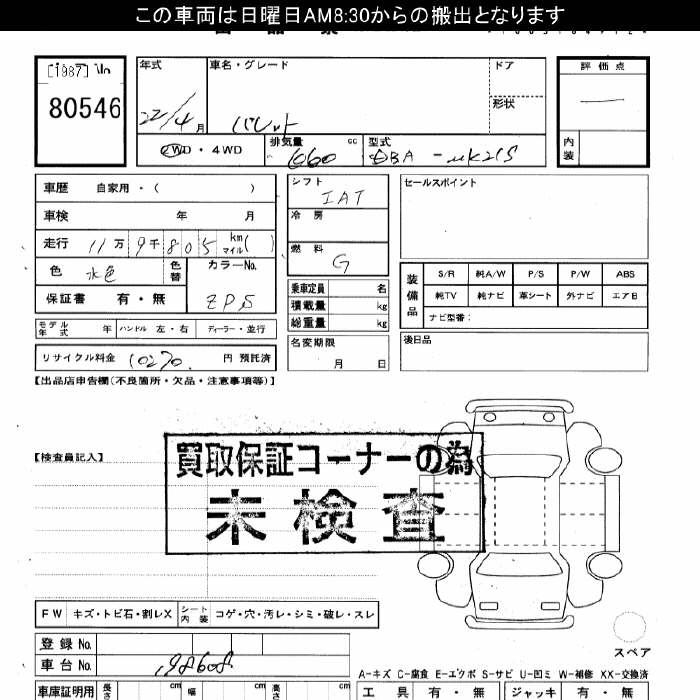 この車両は日曜日AM8:30からの搬出となります
[1987] No
80546
年式 車名・グレード ドア
22/4月 パレット 形状
評価点
―
内装
2WD・4WD 排気量 660 cc 型式 DBA-MK21S
車歴 自家用・( )
車検 年 月
走行 11万 9千 805 km マイル( )
色 水色 色替 カラーNo. ZPS
保証書 有・無
モデル年式 年 ハンドル 左・右 ディーラー・並行
リサイクル料金 10270 円 預託済
シフト IAT
冷房
燃料 G
乗車定員 名
積載量 kg
総重量 kg
名変期限
月 日
セールスポイント
装備品 S/R 純A/W P/S P/W ABS
純TV 純ナビ 革シート 外ナビ エアB
ナビ型番:
後日品
【出品店申告欄(不良箇所・欠品・注意事項等)】
【検査員記入】
買取保証コーナーの為
未検査
FW キズ・トビ石・割レX シート内装 コゲ・穴・汚レ・シミ・破レ・スレ
スペア
登録No.
車台No. 198608
A-キズ C-腐食 E-エクボ S-サビ U-凹ミ W-補修 XX-交換済
車庫証明用 長さ cm 幅 cm 高さ cm
工具 有・無 ジャッキ 有・無